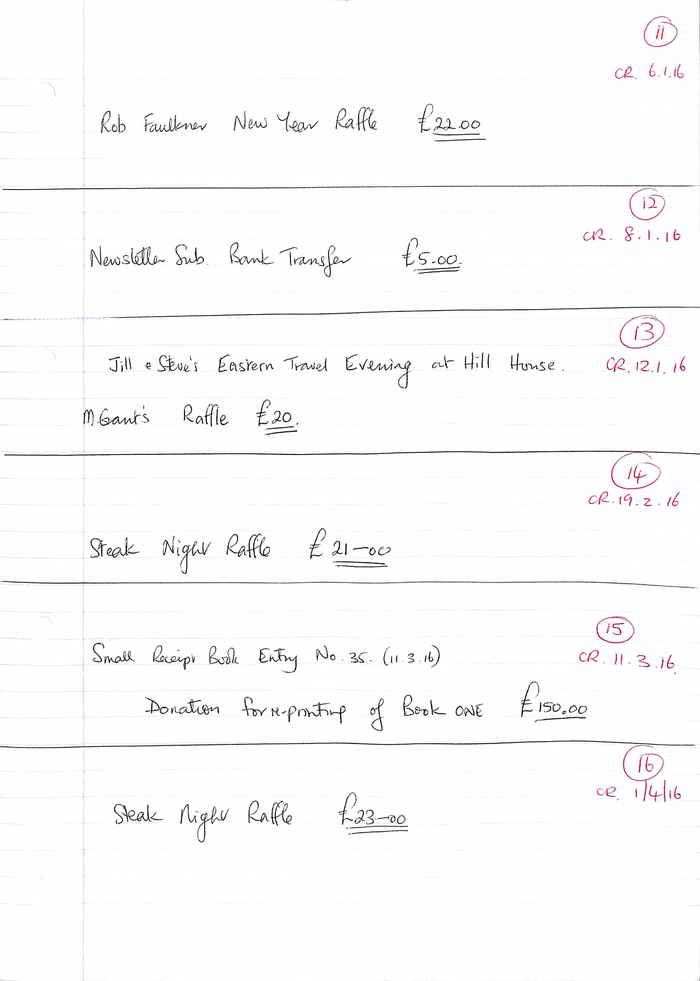 11
CR. 6.1.16
Rob Faulkner New Year Raffle £22.00
12
CR. 8.1.16
Newsletter Sub. Bank Transfer £5.00.
13
Jill & Steve's Eastern Travel Evening at Hill House. CR.12.1.16
M.Gant's Raffle £20.
14
CR.19.2.16
Steak Night Raffle £21-00
15
Small Receipt Book Entry No. 35. (11.3.16) CR. 11.3.16.
Donation for re-printing of Book ONE £150.00
16
CR. 1/4/16
Steak Night Raffle £23-00